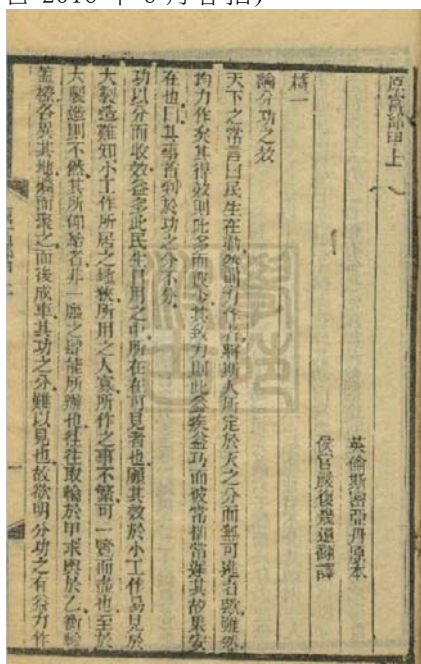 原富部甲上
英倫斯密亞丹原本
侯官嚴復幾道翻譯
篇一
論分功之效
天下之常言曰民生在勤然則力作者將斯人所定於天之分而無可逃者歟雖然
均力作矣其得效則此多而彼少其致力則此益疾益巧而彼常拙常遲其故果安
在也曰其事首判於功之分不分
功以分而收效益多此民生日用之中所在在可見者也顧其效於小工作易見於
大製造難知小工作所居之地狹所用之人寡所作之事不繁可一覽而盡也至於
大製造則不然其所仰給者非一廛之肆能所辦也往往取輪於甲求輿於乙衡軫
蓋橑各異其地攢而聚之而後成車其功之分難以見也故欲明分功之有益力作
一